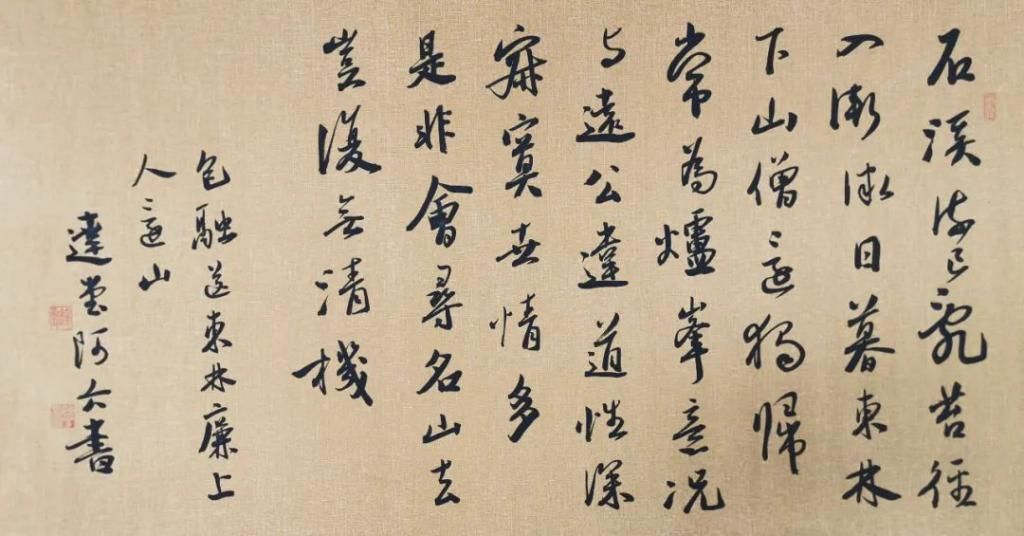 石溪流已亂苔徑
入漸微日暮東林
下山僧還獨歸
常為爐峯意況
与遠公違道性深
寂寞世情多
是非會尋名山去
豈復無清機
包融送東林廉上
人還山
達堂阿書